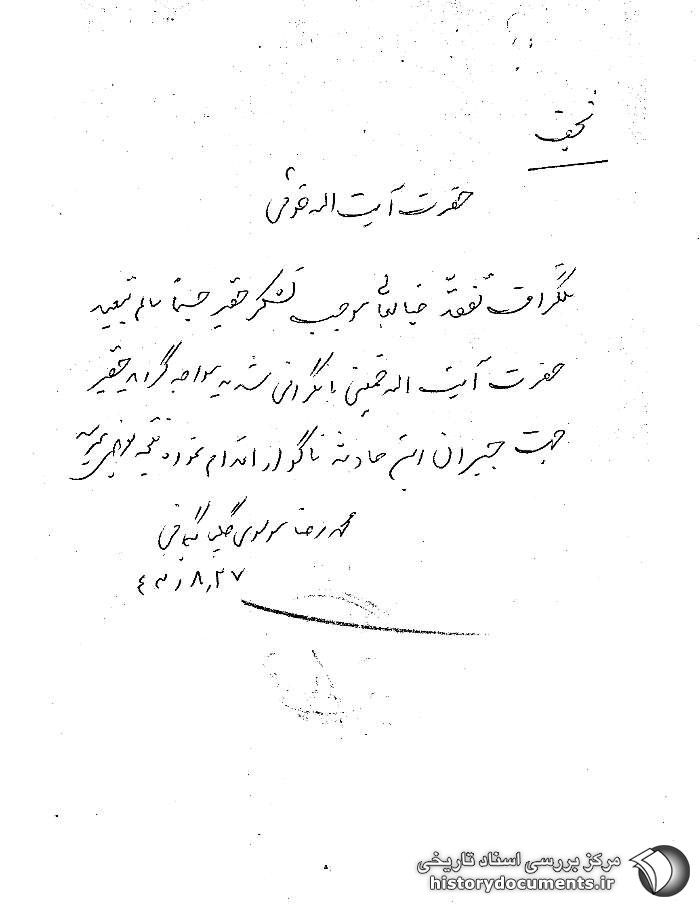 نجف
حضرت آیت اله خوئی
تلگراف تفقد جنابعالی موجب تشکر حقیر جسما سالم تبعید
حضرت آیت اله خمینی با نگرانی شدید مواجه گردید حقیر
جهت جبران این حادثه ناگوار اقدام نموده نتیجه
محمد رضا موسوی گلپایگانی
۴۳ر۸ر۲۷
مرکز بررسی اسناد تاریخی
historydocuments.ir